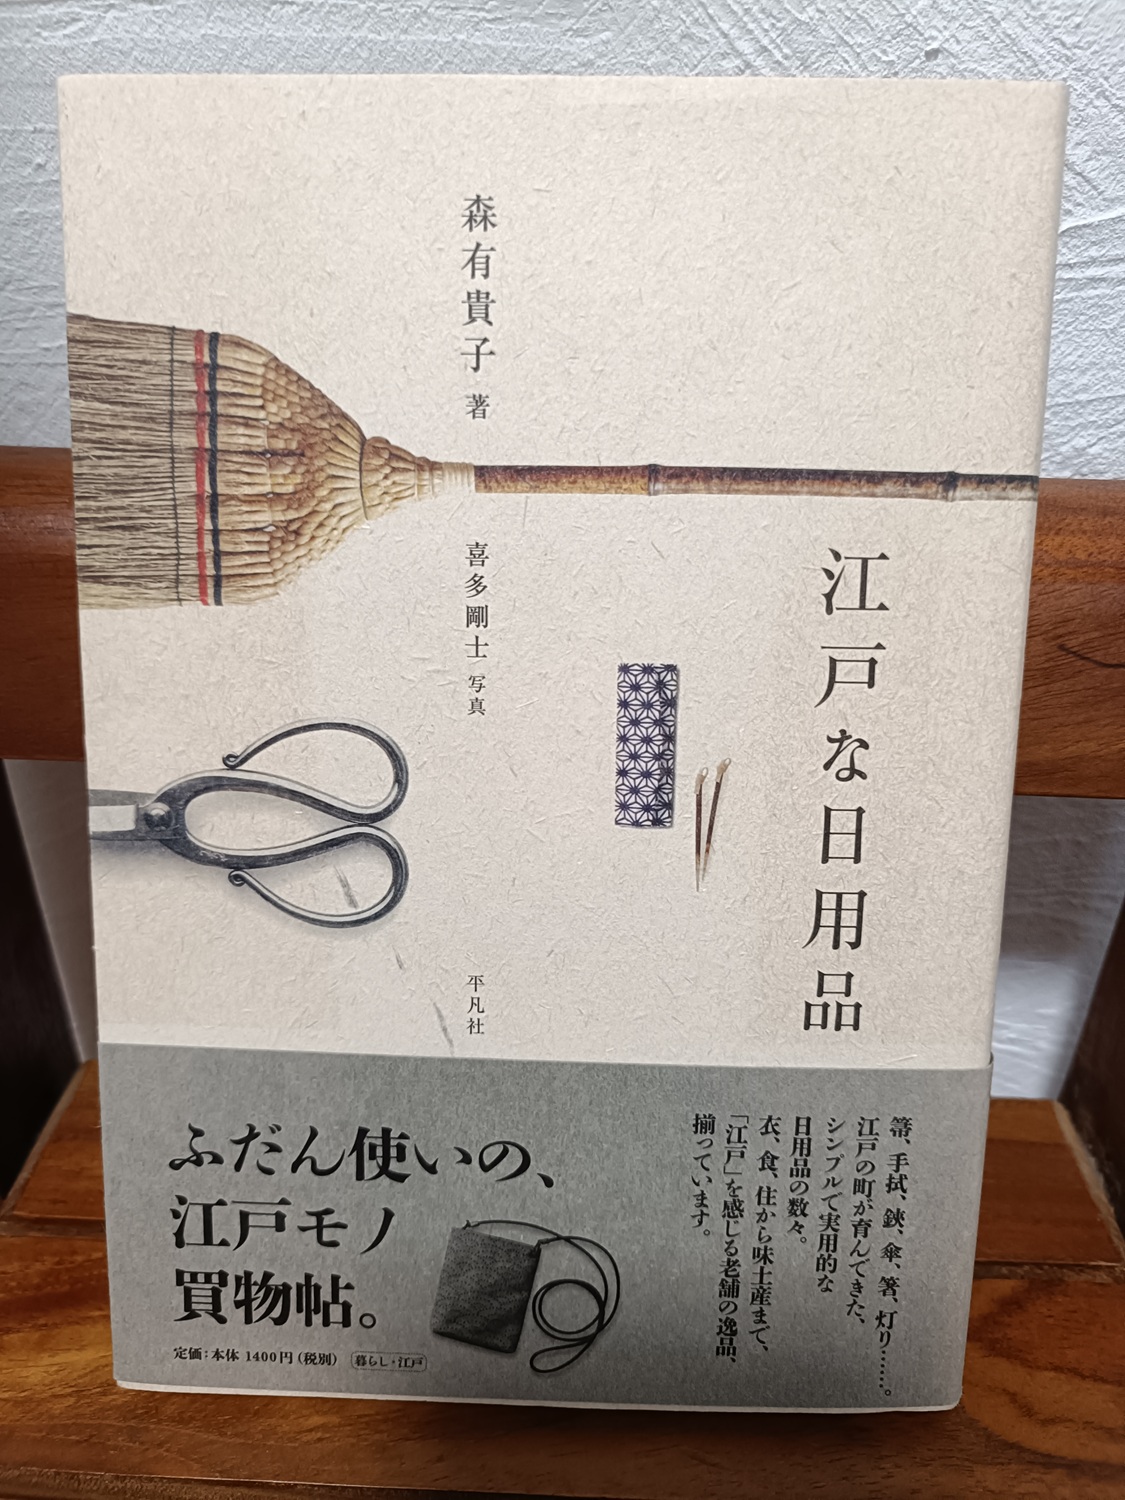 江戸な日用品
森有貴子 著
喜多剛士 写真
平凡社
箒、手拭、鋏、傘、箸、灯り……。
江戸の町が育んできた、
シンプルで実用的な
日用品の数々。
衣、食、住から味土産まで、
「江戸」を感じる老舗の逸品、
揃っています。
ふだん使いの、
江戸モノ
買物帖。
定価:本体 1400円(税別) 暮らし・江戸